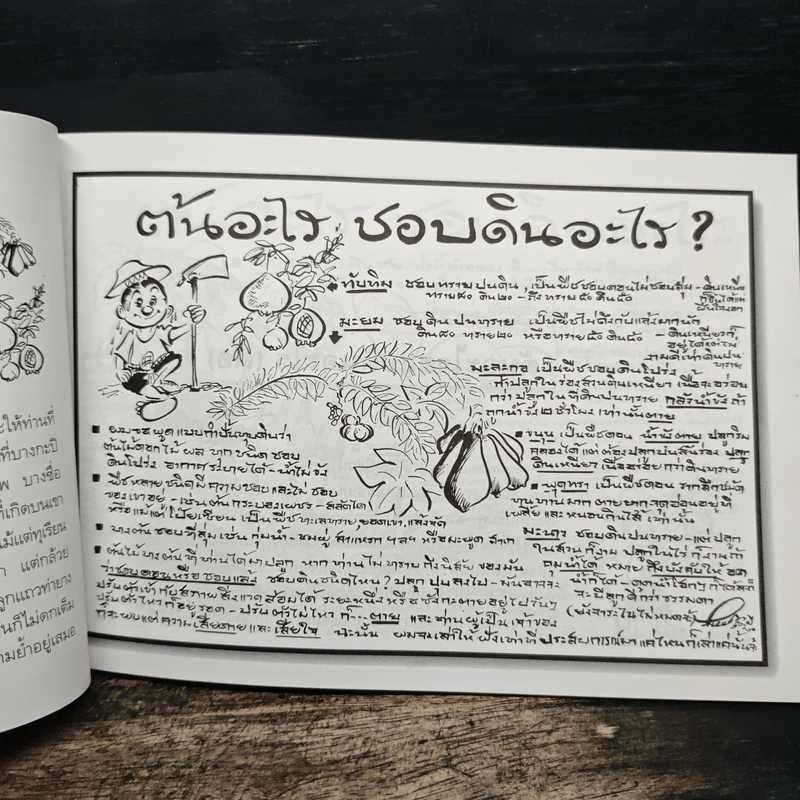 ต้นอะไร ชอบดินอะไร ?
ทับทิม ชอบทรายปนดิน, เป็นพืชชอบดอนไม่ชอบลุ่ม - ดินเหนียว
ทราย๘๐ ดิน๒๐ - ถึง ทราย ๕๐ ดิน๕๐
ก็ขึ้นได้แต่
มะยม ชอบดินปนทราย เป็นพืชไม่ถึงกับแล้งมากนัก
ดิน๘๐ ทราย๒๐ หรือทราย๕๐ ดิน๕๐ - ดินเหนียวก็
อยู่ได้แต่ไม่
งามดีเท่าดินปน
ทราย
มะละกอ เป็นพืชชอบดินโปร่ง
ถ้าปลูกในร่องสวนดินเหนียว เนื้อจะอร่อย
กว่าปลูกในที่ดินปนทราย กลัวน้ำขัง ถ้า
ถูกน้ำขัง๒ชั่วโมงเท่านั้นตาย
ผมขอพูดแบบกำปั้นทุบดินว่า
ต้นไม้ดอกไม้ ผล ทุกชนิด ชอบ
ดินโปร่ง อากาศระบายได้ - น้ำไม่ขัง
ขนุน เป็นพืชดอน น้ำพังตาย ปลูกริม
คลองได้ แต่ต้องปลูกบนสันร่อง ปลูก
ดินเหนียวเนื้ออร่อยกว่าดินทราย
พืชหลายชนิดมีความชอบและไม่ชอบ
ของเขาอยู่ - เช่นต้นกระบองเพชร - สลัดได
หรือแม้แต่โป๊ยเซียน เป็นพืชทะเลทราย ยอดเขา, แล้งจัด
พุทรา เป็นพืชดอน รากลึกชนิด
ทนทานมาก ตายยาก จุดอ่อนอยู่ที่
เพลี้ย และหนอนกินไส้เท่านั้น
บางต้นชอบที่ลุ่ม เช่น กุ่มน้ำ - ชมพู่ สาแหรก ฯลฯ หรือมะพูด
มะนาว ชอบดินปนทราย - แต่ปลูก
ในสวนก็งาม ปลูกในไร่ก็งามถ้า
คุมน้ำได้ หมายถึงบังคับให้อด
น้ำก็ได้ -
จะมีลูกดีกว่าธรรมดา
ต้นไม้บางต้นที่ท่านได้มาปลูก หากท่านไม่ทราบถึงนิสัยของมัน
ว่าชอบดอนหรือชอบแล้ง ชอบดินชนิดไหน? ปลูกปุ๊บลงไป - มันอาจจะ
ปรับตัวเข้ากับสภาพสิ่งแวดล้อมได้ระยะหนึ่งหรือซังกะตายอยู่ไปวันๆ
ปรับตัวไหวก็อยู่รอด - ปรับตัวไม่ไหวก็....ตาย และท่านผู้เป็นเจ้าของ
ก็จะพบแต่ความเสียดายและเสียใจ ฉะนั้น ผมจะเล่าให้ฟังเท่าที่ประสบการณ์มา แค่ไหนก็เล่าแค่นั้น
ะให้ท่านที่
ที่บางกะปิ
พ บางซื่อ
ที่เกิดบนเขา
ม้แต่ทุเรียน
ก แต่กล้วย
ลูกแถวท่ายาง
ันก็ไม่ดกเต็ม
ามย้ำอยู่เสมอ